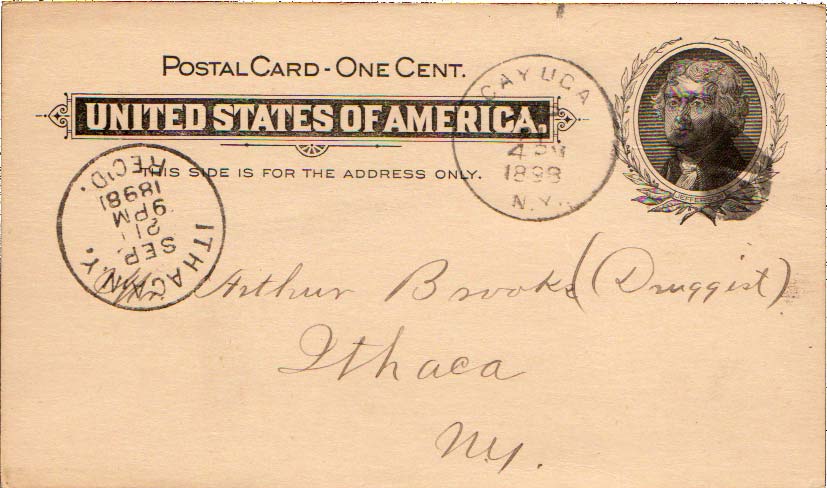 POSTAL CARD - ONE CENT.
UNITED STATES OF AMERICA.
THIS SIDE IS FOR THE ADDRESS ONLY.
CAYUGA
4 PM
1898
N.Y.
JEFFERSON
ITHACA, N.Y.
SEP
21
9PM
18981
REC'D.
Mr. Arthur Brooks (Druggist)
Ithaca
N.Y.